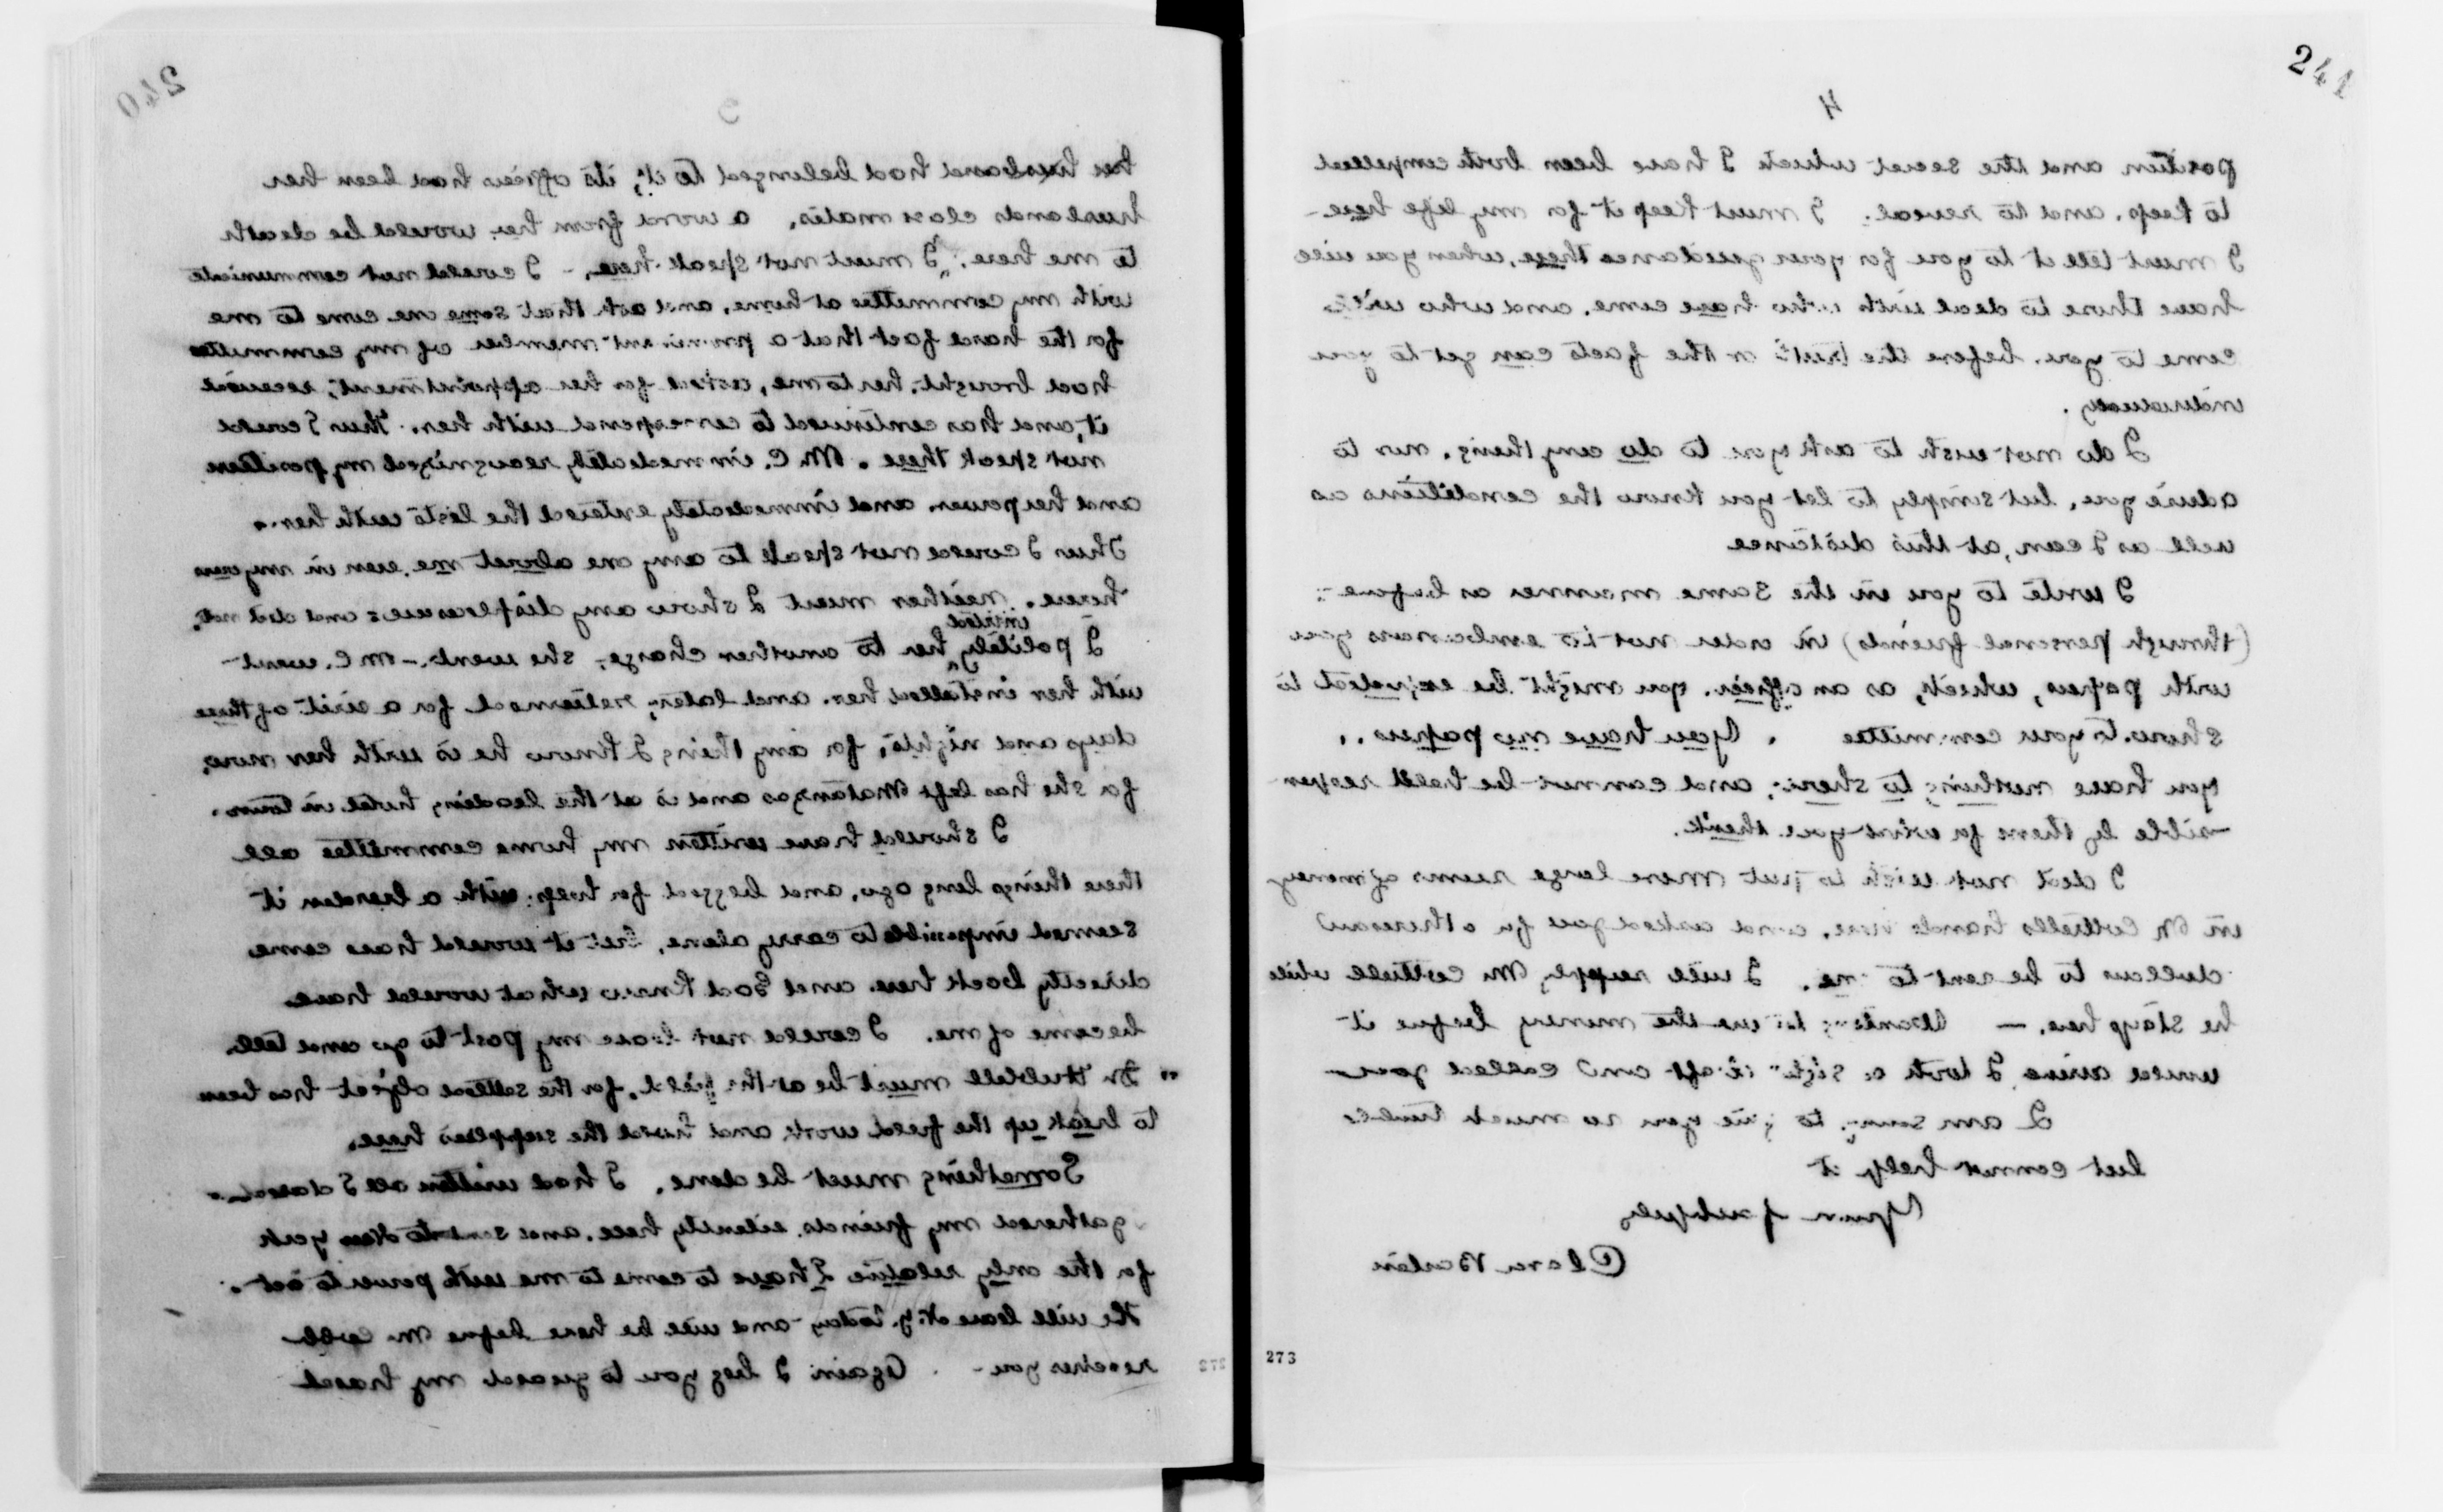 240
3
her husband had belonged to it, its officers had been her
husbands class mates. a word from her would be death
to me here. I must not speak here, - I could not communicate
with my committee at home, and ask that some one come to me
for the hard fact that a prominent member of my committee
had brought her to me, asked for her appointment, received
it, and has continued to correspond with her. Thus I could
not speak there. Mr C. immediately recognized my position
and her power and immediately entered the lists with her.
Thus I could not speak to any one about me even in my own
house. neither must I show any displeasure and did not.
I politely invited her to another charge, she went. - Mr C. went
with her installed her. and later, returned for a visit of three
days and nights, for any thing I know he is with her now,
for she has left Matanzas and is at the leading hotel in town.
I should have written my home committee all
these things long ago, and begged for help with a burden it
seemed impossible to carry alone, but it would have come
directly back here and God knows what would have
become of me. I could not leave my post to go and tell.
Dr Hubbell must be at the field, for the settled object has been
to break up the field work and hold the supplies here.
Something must be done. I had written all I dared -
gathered my friends silently here. and sent to New York
for the only relative I have to come to me with power to act.
He will leave N.Y. today and will be here before Mr Cobb
reaches you - . Again I beg you to guard my hard
272
241
4
position and the secret which I have been both compelled
to keep. and to reveal. I must keep it for my life here -
I must tell it to you for your guidance there, when you will
have those to deal with who have come, and who will
come to you. before the truth or the facts can get to you
individually.
I do not wish to ask you to do any thing. nor to
advise you, but simply to let you know the conditions as
well as I can, at this distance
I write to you in the same manner as before -
(through personal friends) in order not to embarrass you
with papers, which, as an officer. you might be expected to
show. to your committee . You have no papers ..
you have nothing to show; and cannot be held respon-
-sible by them for what you think.
I did not wish to put more large sums of money
in Mr Cottrells hands here, and asked you for a thousand
dollars to be sent to me. I will supply Mr Cottrell while
he stays here. - Wanting to use the money before it
would arrive I took a sight draft and called your
I am sorry to give you so much trouble
but cannot help it
Yours faithfully
Clara Barton
273